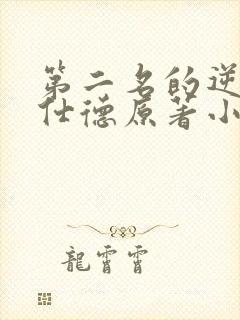 第二名的逆
仕德原著小
龍霄霄